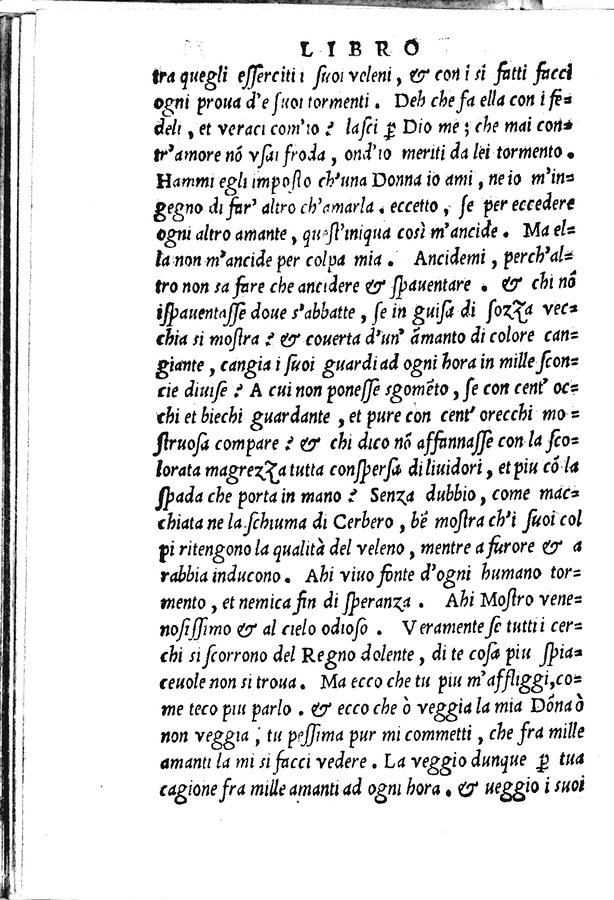 LIBRO
tra quegli eſſerciti i ſuoi veleni, & con i ſi fatti facci
ogni proua d'e ſuoi tormenti. Deh che fa ella con i fe=
deli, et veraci com'io? laſci ꝑ Dio me; che mai con=
tr'amore nõ vſai froda, ond'io meriti da lei tormento.
Hammi egli impoſto ch'una Donna io ami, ne io m'in=
gegno di far' altro ch'amarla. eccetto, ſe per eccedere
ogni altro amante, queſt'iniqua così m'ancide. Ma el=
la non m'ancide per colpa mia. Ancidemi, perch'al=
tro non sa fare che ancidere & ſpauentare. & chi nõ
iſpauentaſſe doue s'abbatte, ſe in guiſa di ſozza vec=
chia si moſtra? & couerta d'un' amanto di colore can=
giante, cangia i ſuoi guardi ad ogni hora in mille ſcon=
cie diuiſe? A cui non poneſſe sgomẽto, ſe con cent' oc=
chi et biechi guardante, et pure con cent' orecchi mo=
ſtruoſa compare? & chi dico nõ affannaſſe con la ſco=
lorata magrezza tutta conſperſa di liuidori, et piu cõ la
ſpada che porta in mano? Senza dubbio, come mac=
chiata ne la ſchiuma di Cerbero, bẽ moſtra ch'i ſuoi col
pi ritengono la qualità del veleno, mentre a furore & a
rabbia inducono. Ahi viuo fonte d'ogni humano tor=
mento, et nemica fin di ſperanza. Ahi Moſtro vene=
noſiſſimo & al cielo odioſo. Veramente ſe tutti i cer=
chi si ſcorrono del Regno dolente, di te coſa piu ſpia=
ceuole non si troua. Ma ecco che tu piu m'affliggi, co=
me teco piu parlo. & ecco che ò veggia la mia Dõna ò
non veggia, tu peſſima pur mi commetti, che fra mille
amanti la mi si facci vedere. La veggio dunque ꝑ tua
cagione fra mille amanti ad ogni hora. & ueggio i suoi